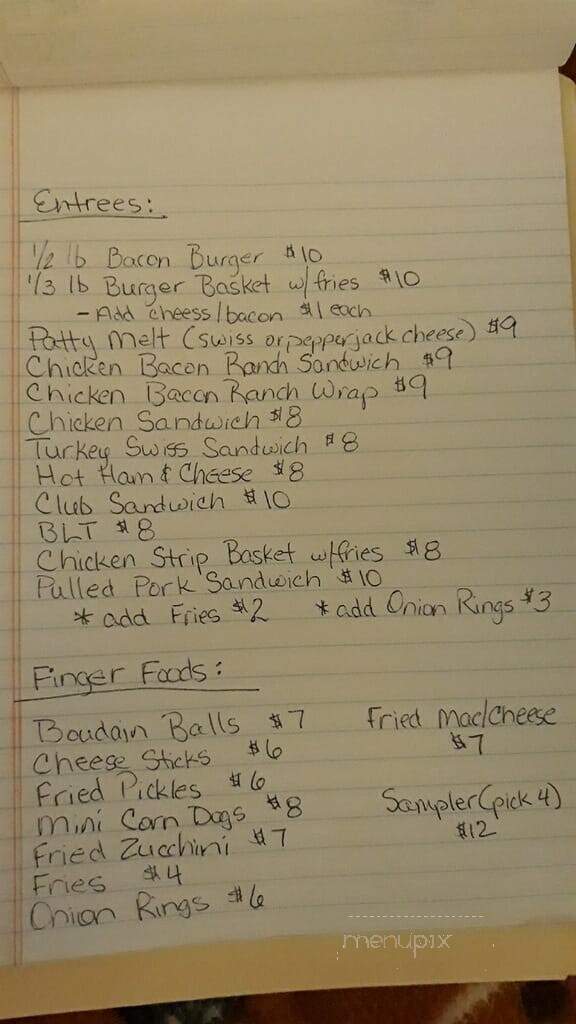 Entrees:
1/2 lb Bacon Burger $10
1/3 lb Burger Basket w/fries $10
- Add cheess/bacon $1 each
Patty Melt (swiss or pepperjack cheese) $9
Chicken Bacon Ranch Sandwich $9
Chicken Bacon Ranch Wrap $9
Chicken Sandwich $8
Turkey Swiss Sandwich $8
Hot Ham & Cheese $8
Club Sandwich $10
BLT $8
Chicken Strip Basket w/fries $8
Pulled Pork Sandwich $10
* add Fries $2 * add Onion Rings $3
Finger Foods:
Boudain Balls $7
Cheese Sticks $6
Fried Pickles $6
Mini Corn Dogs $8
Fried Zucchini $7
Fries $4
Onion Rings $6
Fried Mac/Cheese
$7
Sampler (pick 4)
$12
menupix